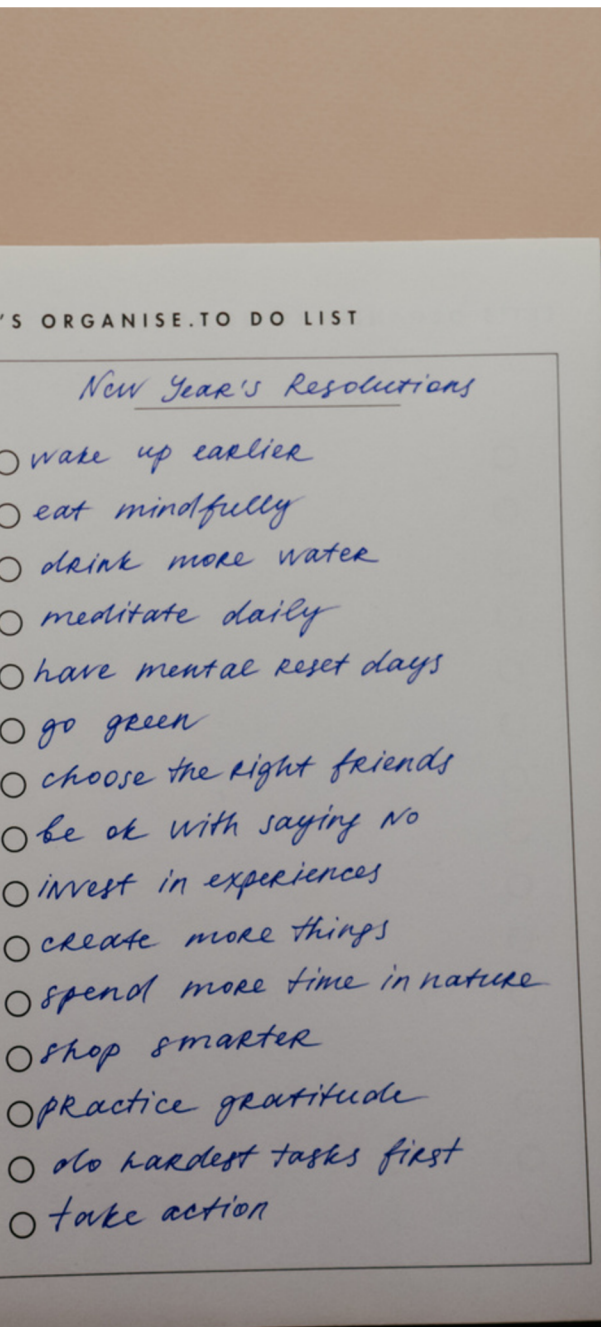 'S ORGANISE.TO DO LIST
New Year's Resolutions
wake up earlier
eat mindfully
drink more water
meditate daily
have mental reset days
go green
choose the right friends
be ok with saying No
invest in experiences
create more things
spend more time in nature
shop smarter
practice gratitude
do hardest tasks first
take action